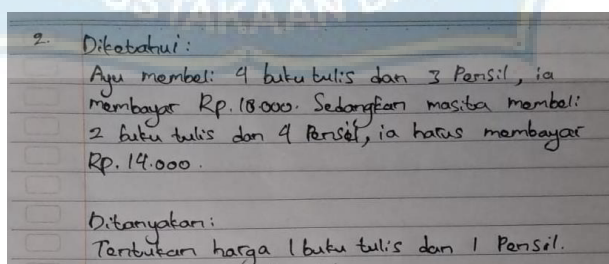 2. Diketahui:
Ayu membeli 4 buku tulis dan 3 Pensil, ia
membayar Rp. 18.000. Sedangkan masita membeli
2 buku tulis dan 4 Pensil, ia harus membayar
Rp. 14.000.
Ditanyakan:
Tentukan harga 1 buku tulis dan 1 Pensil.